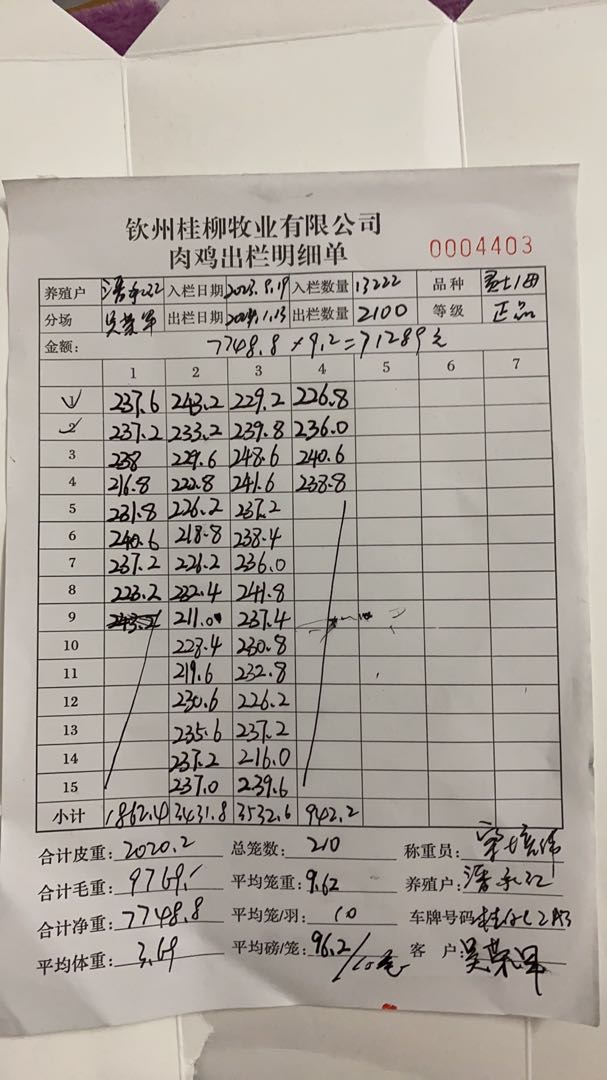 钦州桂柳牧业有限公司
肉鸡出栏明细单
0004403
养殖户 入栏日期 2023.8.19 入栏数量 13222 品种
分场 吴荣军 出栏日期 2024.1.13 出栏数量 2100 等级 正品
金额: 7748.8×9.2=71289元
1 2 3 4 5 6 7
1 237.6 243.2 229.2 226.8
2 237.2 233.2 239.8 236.0
3 238 229.6 248.6 240.6
4 216.8 222.8 241.6 238.8
5 231.8 226.2 237.2
6 240.6 218.8 238.4
7 237.2 226.2 236.0
8 223.2 232.4 241.8
9 211.0 237.4
10 228.4 230.8
11 219.6 232.8
12 230.6 226.2
13 235.6 237.2
14 237.2 216.0
15 237.0 239.6
小计 1862.4 3431.8 3532.6 942.2
合计皮重: 2020.2 总笼数: 210 称重员:
合计毛重: 9769.- 平均笼重: 9.62 养殖户:
合计净重: 7748.8 平均笼/羽: 10 车牌号码
平均体重: 3.69 平均磅/笼: 96.2/ 客 户: 吴荣军